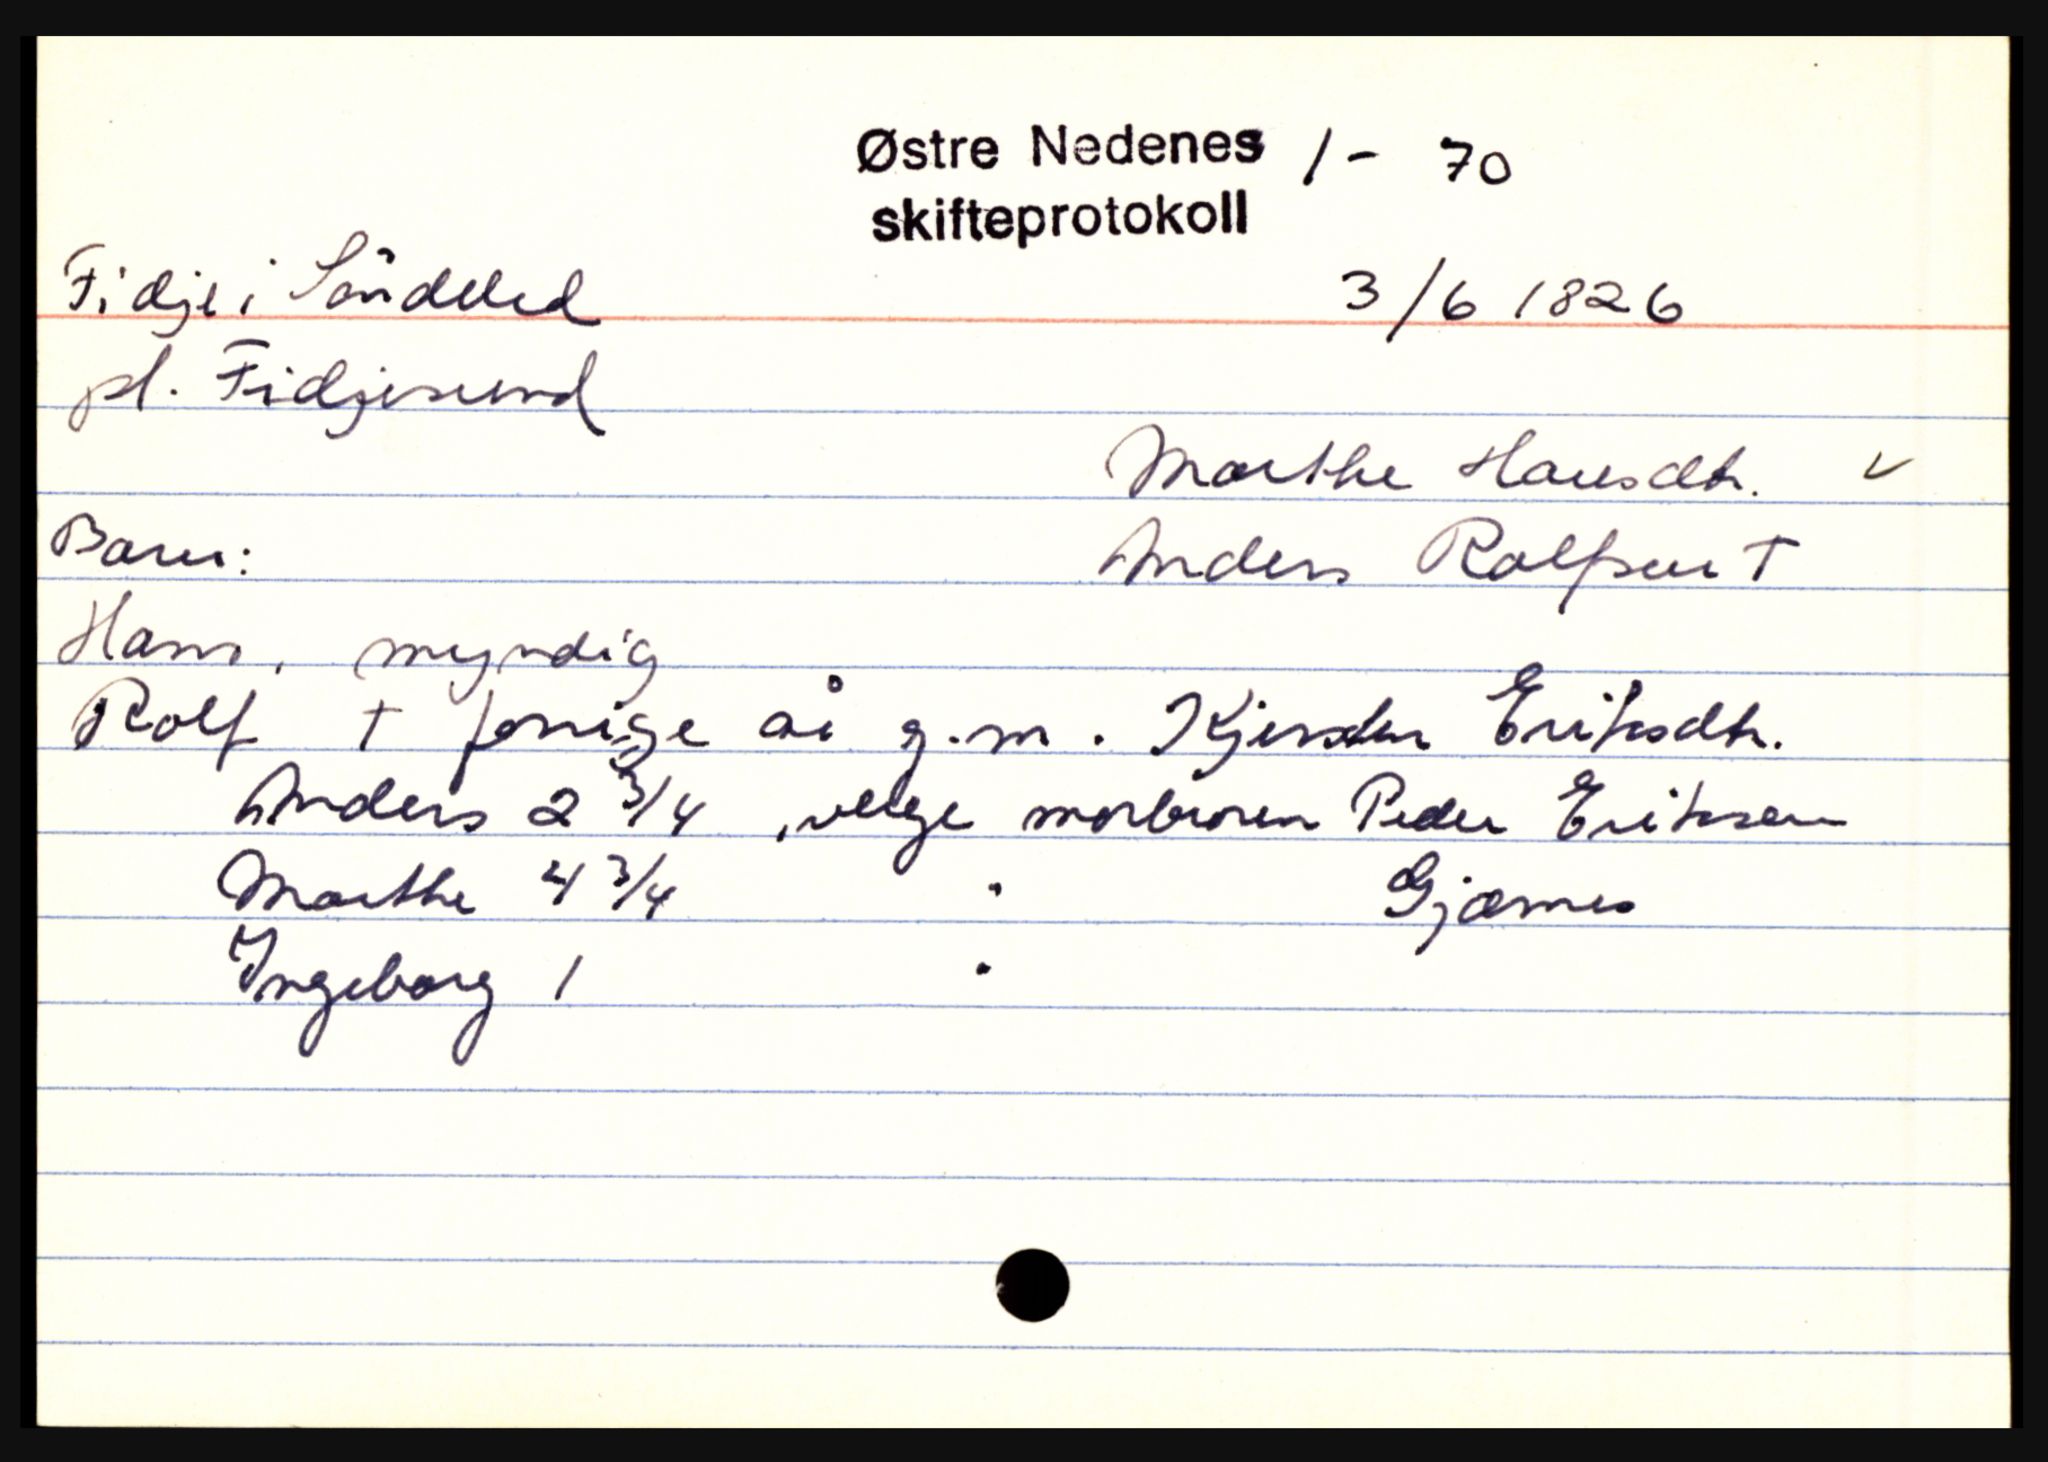 Østre Nedenes 1 - 70
skifteprotokoll
Fidje i Söndeled 3/6 1826
pl. Fidjesund
Marthe Hansdtr. v
Barn: Anders Rolfsen †
Hans, myndig
Rolf † forrige år g.m. Kjersten Eriksdtr.
Anders 2 3/4, verge morbroren Peder Eriksen
Marthe 4 3/4 " Gjærnes
Ingeborg 1 "